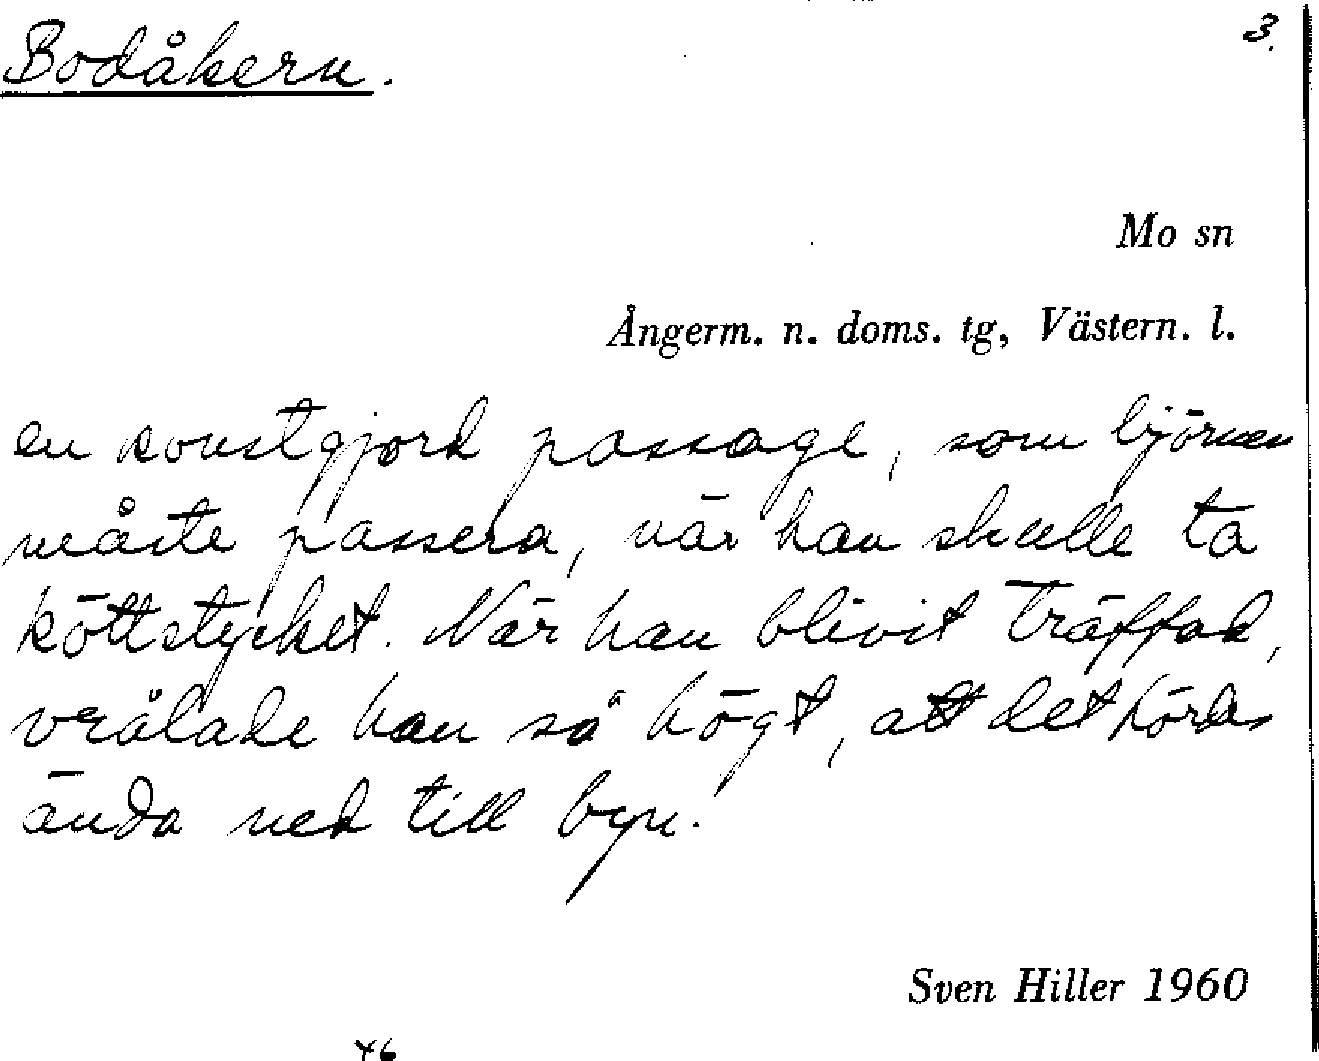 Bodåkern.
3.
Mo sn
Ångerm. n. doms. tg, Västern. l.
en konstgjord passage, som björnen
måste passera, när han skulle ta
köttstycket. När han blivit träffad,
vrålade han så högt, att det hördes
ända ned till byn.
Sven Hiller 1960
46